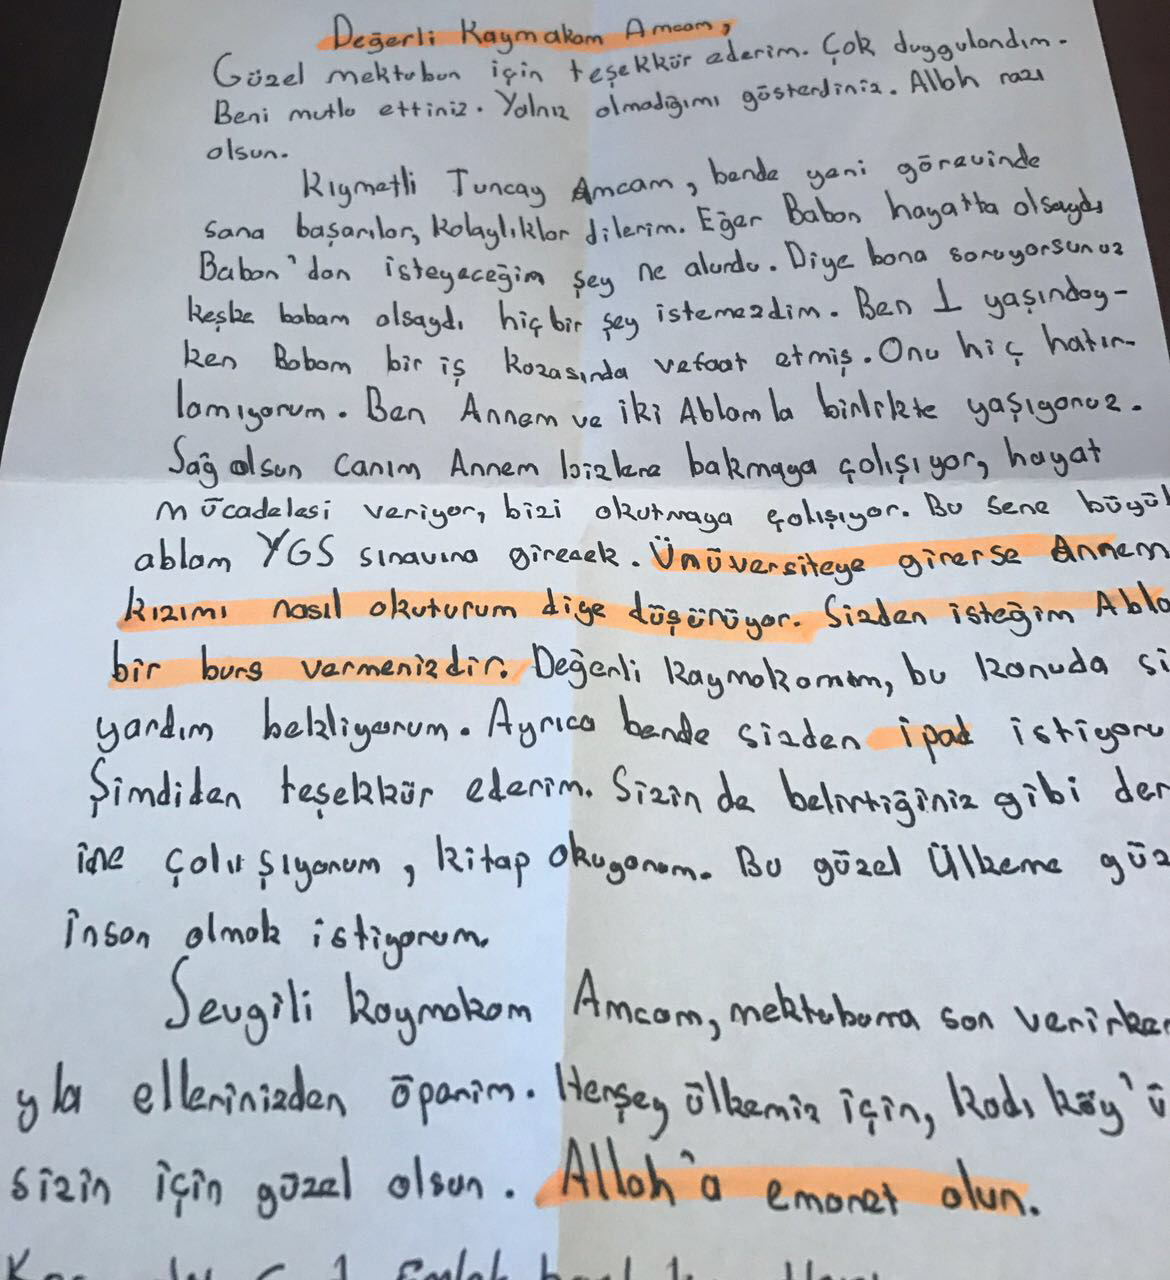 Değerli Kaymakam Amcam,
Güzel mektubun için teşekkür ederim. Çok duygulandım.
Beni mutlu ettiniz. Yalnız olmadığımı gösterdiniz. Allah razı
olsun.
Kıymetli Tuncay Amcam, bende yeni görevinde
sana başarılar, kolaylıklar dilerim. Eğer Baban hayatta olsaydı
Baban'dan isteyeceğim şey ne alurdu. Diye bana soruyorsunuz
keşke babam olsaydı hiçbir şey istemezdim. Ben 1 yaşınday-
ken Babam bir iş kazasında vefaat etmiş. Onu hiç hatır-
lamıyorum. Ben Annem ve iki Ablamla birlikte yaşıyoruz.
Sağ olsun canım Annem bizlere bakmaya çalışıyor, hayat
mücadelesi veriyor, bizi okutmaya çalışıyor. Bu sene büyük
ablam YGS sınavına girecek. Ünüversiteye girerse Annem
kızımı nasıl okuturum diye düşünüyor. Sizden isteğim Abla
bir burs vermenizdir. Değerli kaymakamım, bu konuda si
yardım bekliyorum. Ayrıca bende sizden ipad istiyoru
Şimdiden teşekkür ederim. Sizin de belirtiğiniz gibi der
ine çalışıyorum, kitap okuyorum. Bu güzel Ülkeme güz
insan olmak istiyorum.
Sevgili kaymakam Amcam, mektubuma son verirken
yla ellerinizden öperim. Herşey ülkemiz için, kadı köy'ü
sizin için güzel olsun. Allah'a emanet olun.